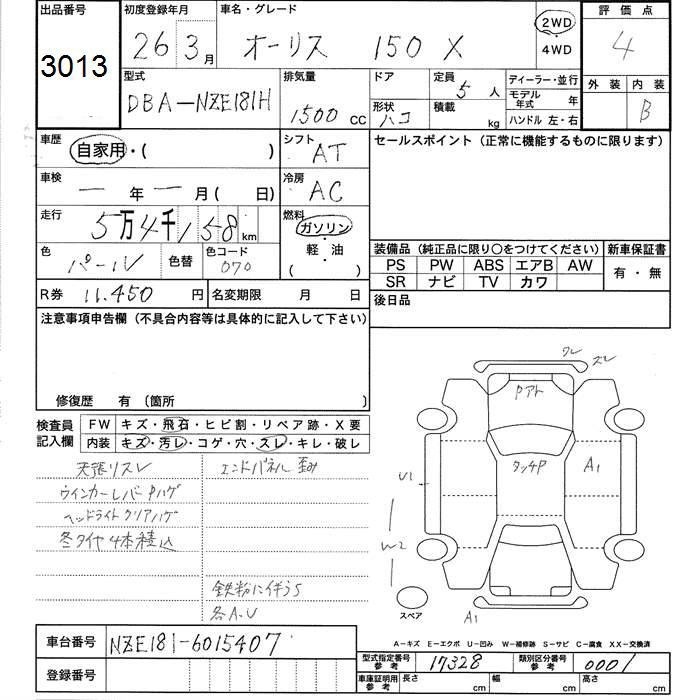 出品番号
3013
初度登録年月
26 3月
車名・グレード
オーリス 150 X
2WD
・
4WD
評価点
4
外装 内装
B
型式
DBA-NZE181H
排気量
1500 cc
ドア
定員
5 人
形状
ハコ
積載
kg
ディーラー・並行
モデル年式 年
ハンドル 左・右
車歴
自家用・( )
シフト
AT
セールスポイント (正常に機能するものに限ります)
車検
ー 年 ー 月( 日)
冷房
AC
走行
5万4千158km
燃料
ガソリン
・
軽・油
( )
色
パール
色替
色コード
070
装備品 (純正品に限り○をつけてください)
PS PW ABS エアB AW
SR ナビ TV カワ
新車保証書
有・無
R券 11.450 円
名変期限 月 日
後日品
注意事項申告欄 (不具合内容等は具体的に記入して下さい)
修復歴 有 (箇所
検査員記入欄
FW キズ・飛石・ヒビ割・リペア跡・X要
内装 キズ・汚レ・コゲ・穴・スレ・キレ・破レ
天張リスレ
ウインカーレバーPハゲ
ヘッドライトクリアハゲ
冬タイヤ4本積込
エンドパネル歪み
鉄粉に伴うS
各A.U
ワレ
スレ
Pアト
タッチP
A1
U1
W2
A1
スペア
A-キズ E-エクボ U-凹み W-補修跡 S-サビ C-腐食 XX-交換済
車台番号
NZE181-6015407
登録番号
型式指定番号参考
17328
類別区分番号参考
0001
車庫証明用参考
長さ cm
幅 cm
高さ cm